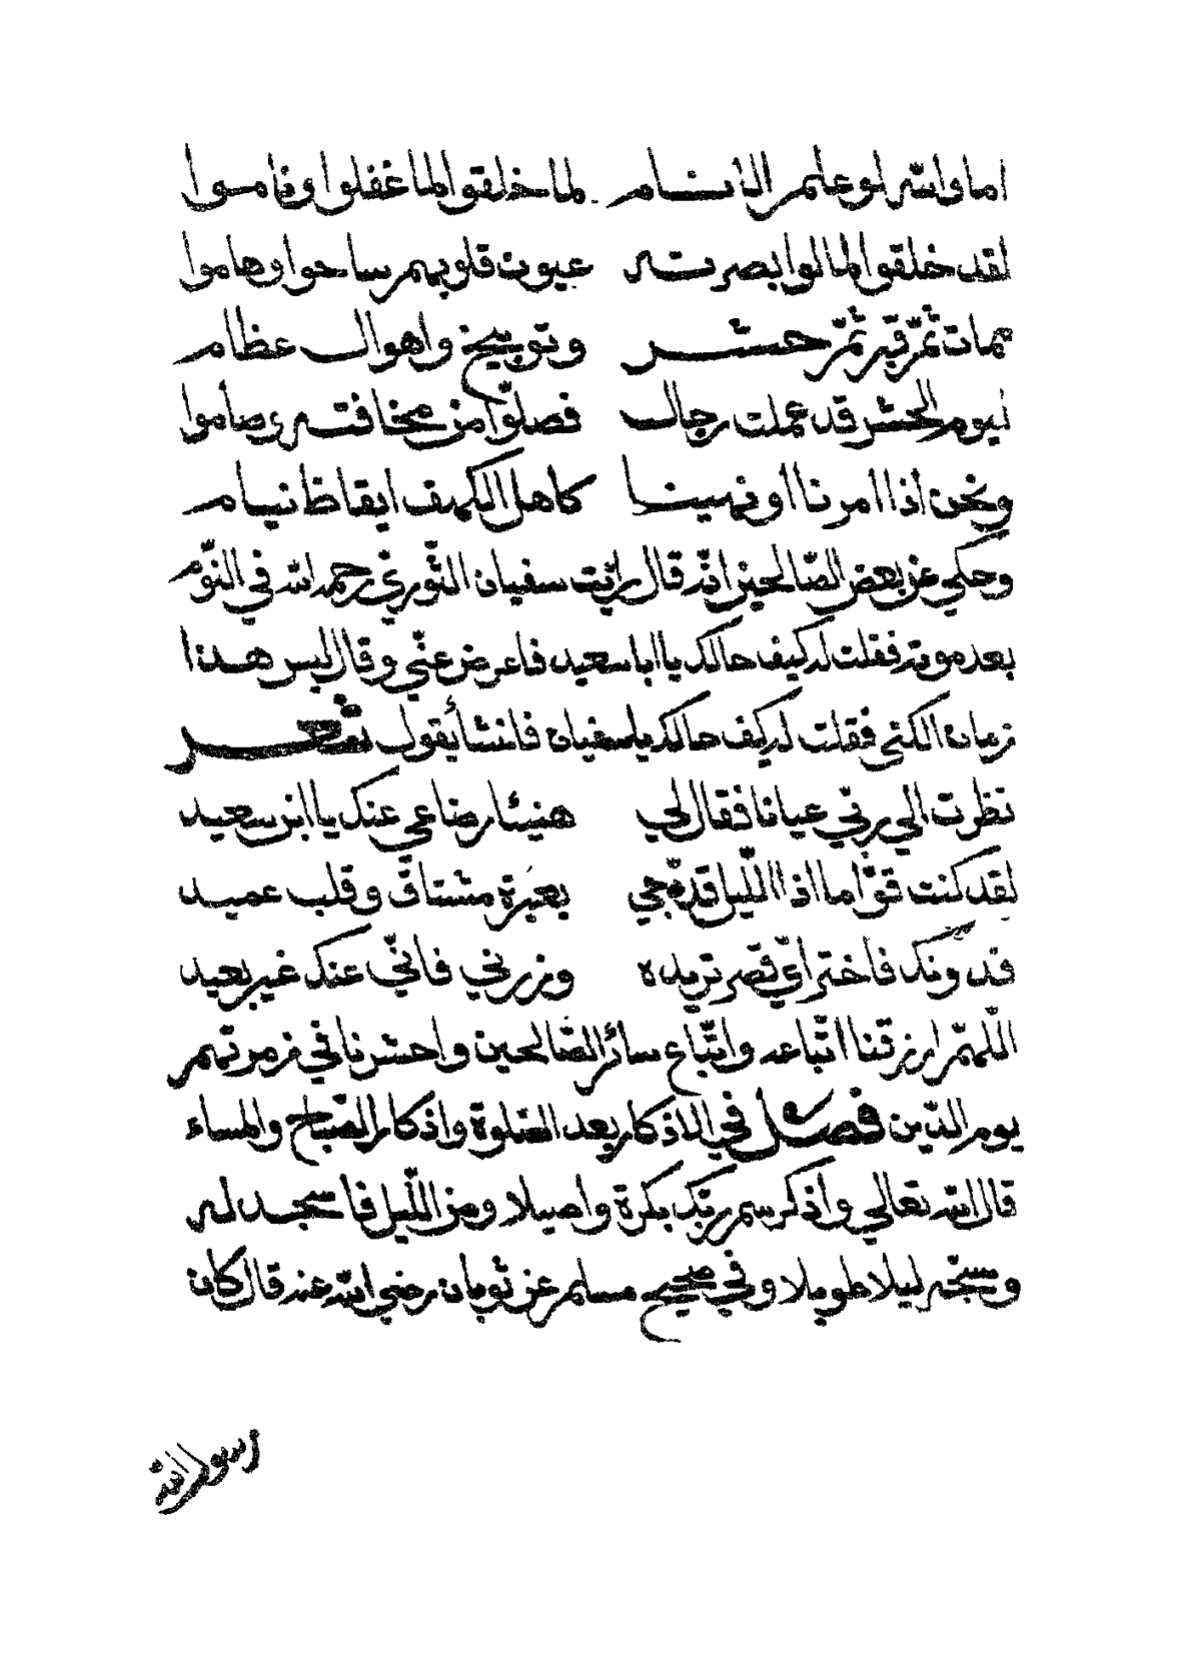 اما والله لو علم الانام لما خلقوا لما غفلوا وناموا
لقد خلقوا لما لوا بصرته عيون قلوبهم ساحوا وهاموا
ممات ثمّ قبر ثمّ حشر وتوبيخ واهوال عظام
ليوم الحشر قد عملت رجال فصلّوا من مخافته وصاموا
ونحن اذا امرنا أو نهينا كاهل الكهف ايقاظ نيام
وحكي عن بعض الصّالحين انّه قال رايت سفيان الثّوريّ رحمه الله في النّوم
بعد موته فقلت له كيف حالك يا ابا سعيد فاعرض عنّي وقال ليس هذا
زمان الكنى فقلت له كيف حالك يا سفيان فانشأ يقول شعر
نظرت الي ربّي عيانا فقال لي هنيئا رضاءي عنك يا ابن سعيد
لقد كنت قوّاما اذا اللّيل قد دجي بعبرة مشتاق وقلب عميد
فدونك فاختر ايّ قصر تريده وزرني فانّي عنك غير بعيد
اللّهمّ ارزقنا اتّباعه واتّباع سائر الصّالحين واحشرنا في زمرتهم
يوم الدّين فصل في الاذكار بعد الصّلوة واذكار الصّباح والمساء
قال الله تعالي واذكر اسم ربّك بكرة واصيلا ومن اللّيل فاسجد له
وسبّحه ليلا طويلا وفي صحيح مسلم عن ثوبان رضي الله عنه قال كان
رسول الله